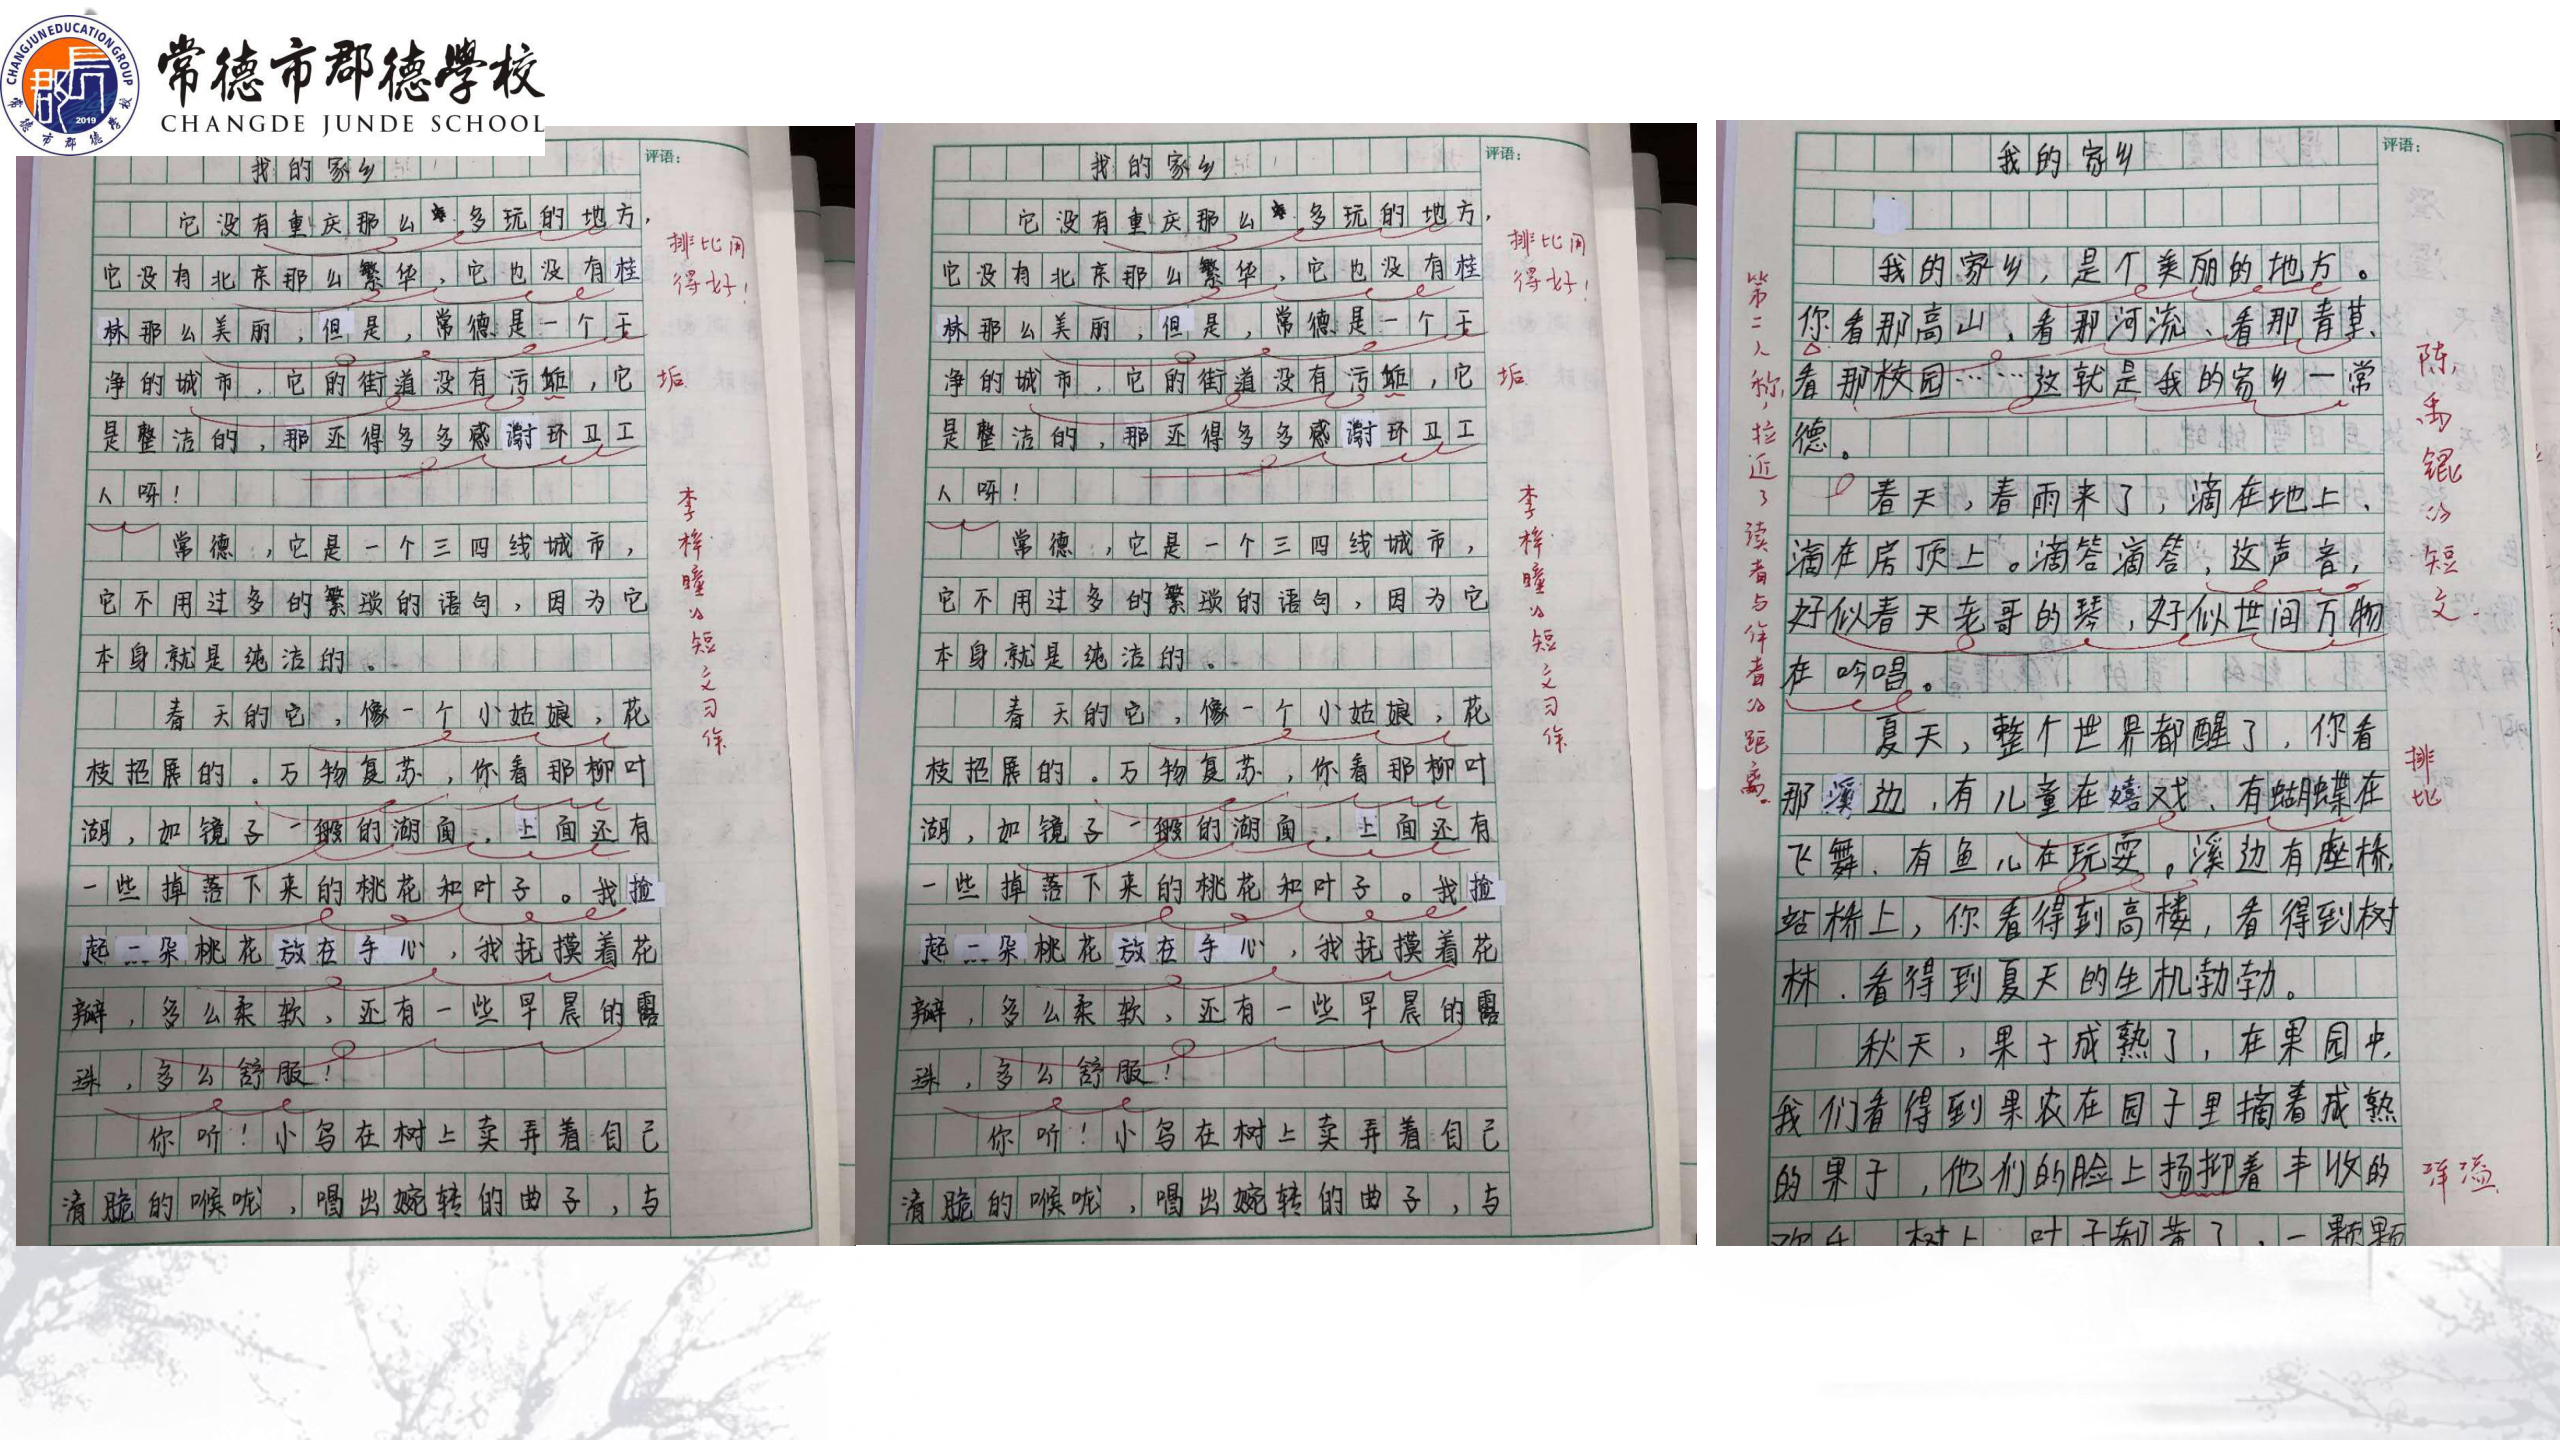 CHANGJUN EDUCATION GROUP
郡
2019
常德市郡德学校
常德市郡德學校
CHANGDE JUNDE SCHOOL
我的家乡
评语:
它没有重庆那么多玩的地方,
它没有北京那么繁华,它也没有桂
林那么美丽,但是,常德是一个干
净的城市,它的街道没有污,它
是整洁的,那还得多多感谢环卫工
人呀!
常德,它是一个三四线城市,
它不用过多的繁琐的语句,因为它
本身就是纯洁的。
春天的它,像一个小姑娘,花
枝招展的。万物复苏,你看那柳叶
湖,如镜子一般的湖面,上面还有
一些掉落下来的桃花和叶子。我捡
起二朵桃花放在手心,我抚摸着花
瓣,多么柔软,还有一些早晨的露
珠,多么舒服!
你听!小鸟在树上卖弄着自己
清脆的喉咙,唱出婉转的曲子,与
排比用
得好!
垢
李梓瞳的短文习作
我的家乡
评语:
它没有重庆那么多玩的地方,
它没有北京那么繁华,它也没有桂
林那么美丽,但是,常德是一个干
净的城市,它的街道没有污,它
是整洁的,那还得多多感谢环卫工
人呀!
常德,它是一个三四线城市,
它不用过多的繁琐的语句,因为它
本身就是纯洁的。
春天的它,像一个小姑娘,花
枝招展的。万物复苏,你看那柳叶
湖,如镜子一般的湖面,上面还有
一些掉落下来的桃花和叶子。我捡
起二朵桃花放在手心,我抚摸着花
瓣,多么柔软,还有一些早晨的露
珠,多么舒服!
你听!小鸟在树上卖弄着自己
清脆的喉咙,唱出婉转的曲子,与
排比用
得好!
垢
李梓瞳的短文习作
我的家乡
评语:
我的家乡,是个美丽的地方。
你看那高山、看那河流、看那青草、
看那校园……这就是我的家乡一常
德。
春天,春雨来了,滴在地上、
滴在房顶上。滴答滴答,这声音,
好似春天老哥的琴,好似世间万物
在吟唱。
夏天,整个世界都醒了,你看
那溪边,有儿童在嬉戏、有蝴蝶在
飞舞、有鱼儿在玩耍。溪边有座桥,
站桥上,你看得到高楼,看得到树
林、看得到夏天的生机勃勃。
秋天,果子成熟了,在果园中,
我们看得到果农在园子里摘着成熟
的果子,他们的脸上扬抑着丰收的
欢乐 树上 叶子都黄了,一颗颗
第二人称,拉近了读者与作者的距离。
陈禹锟的短文.
排比
洋溢